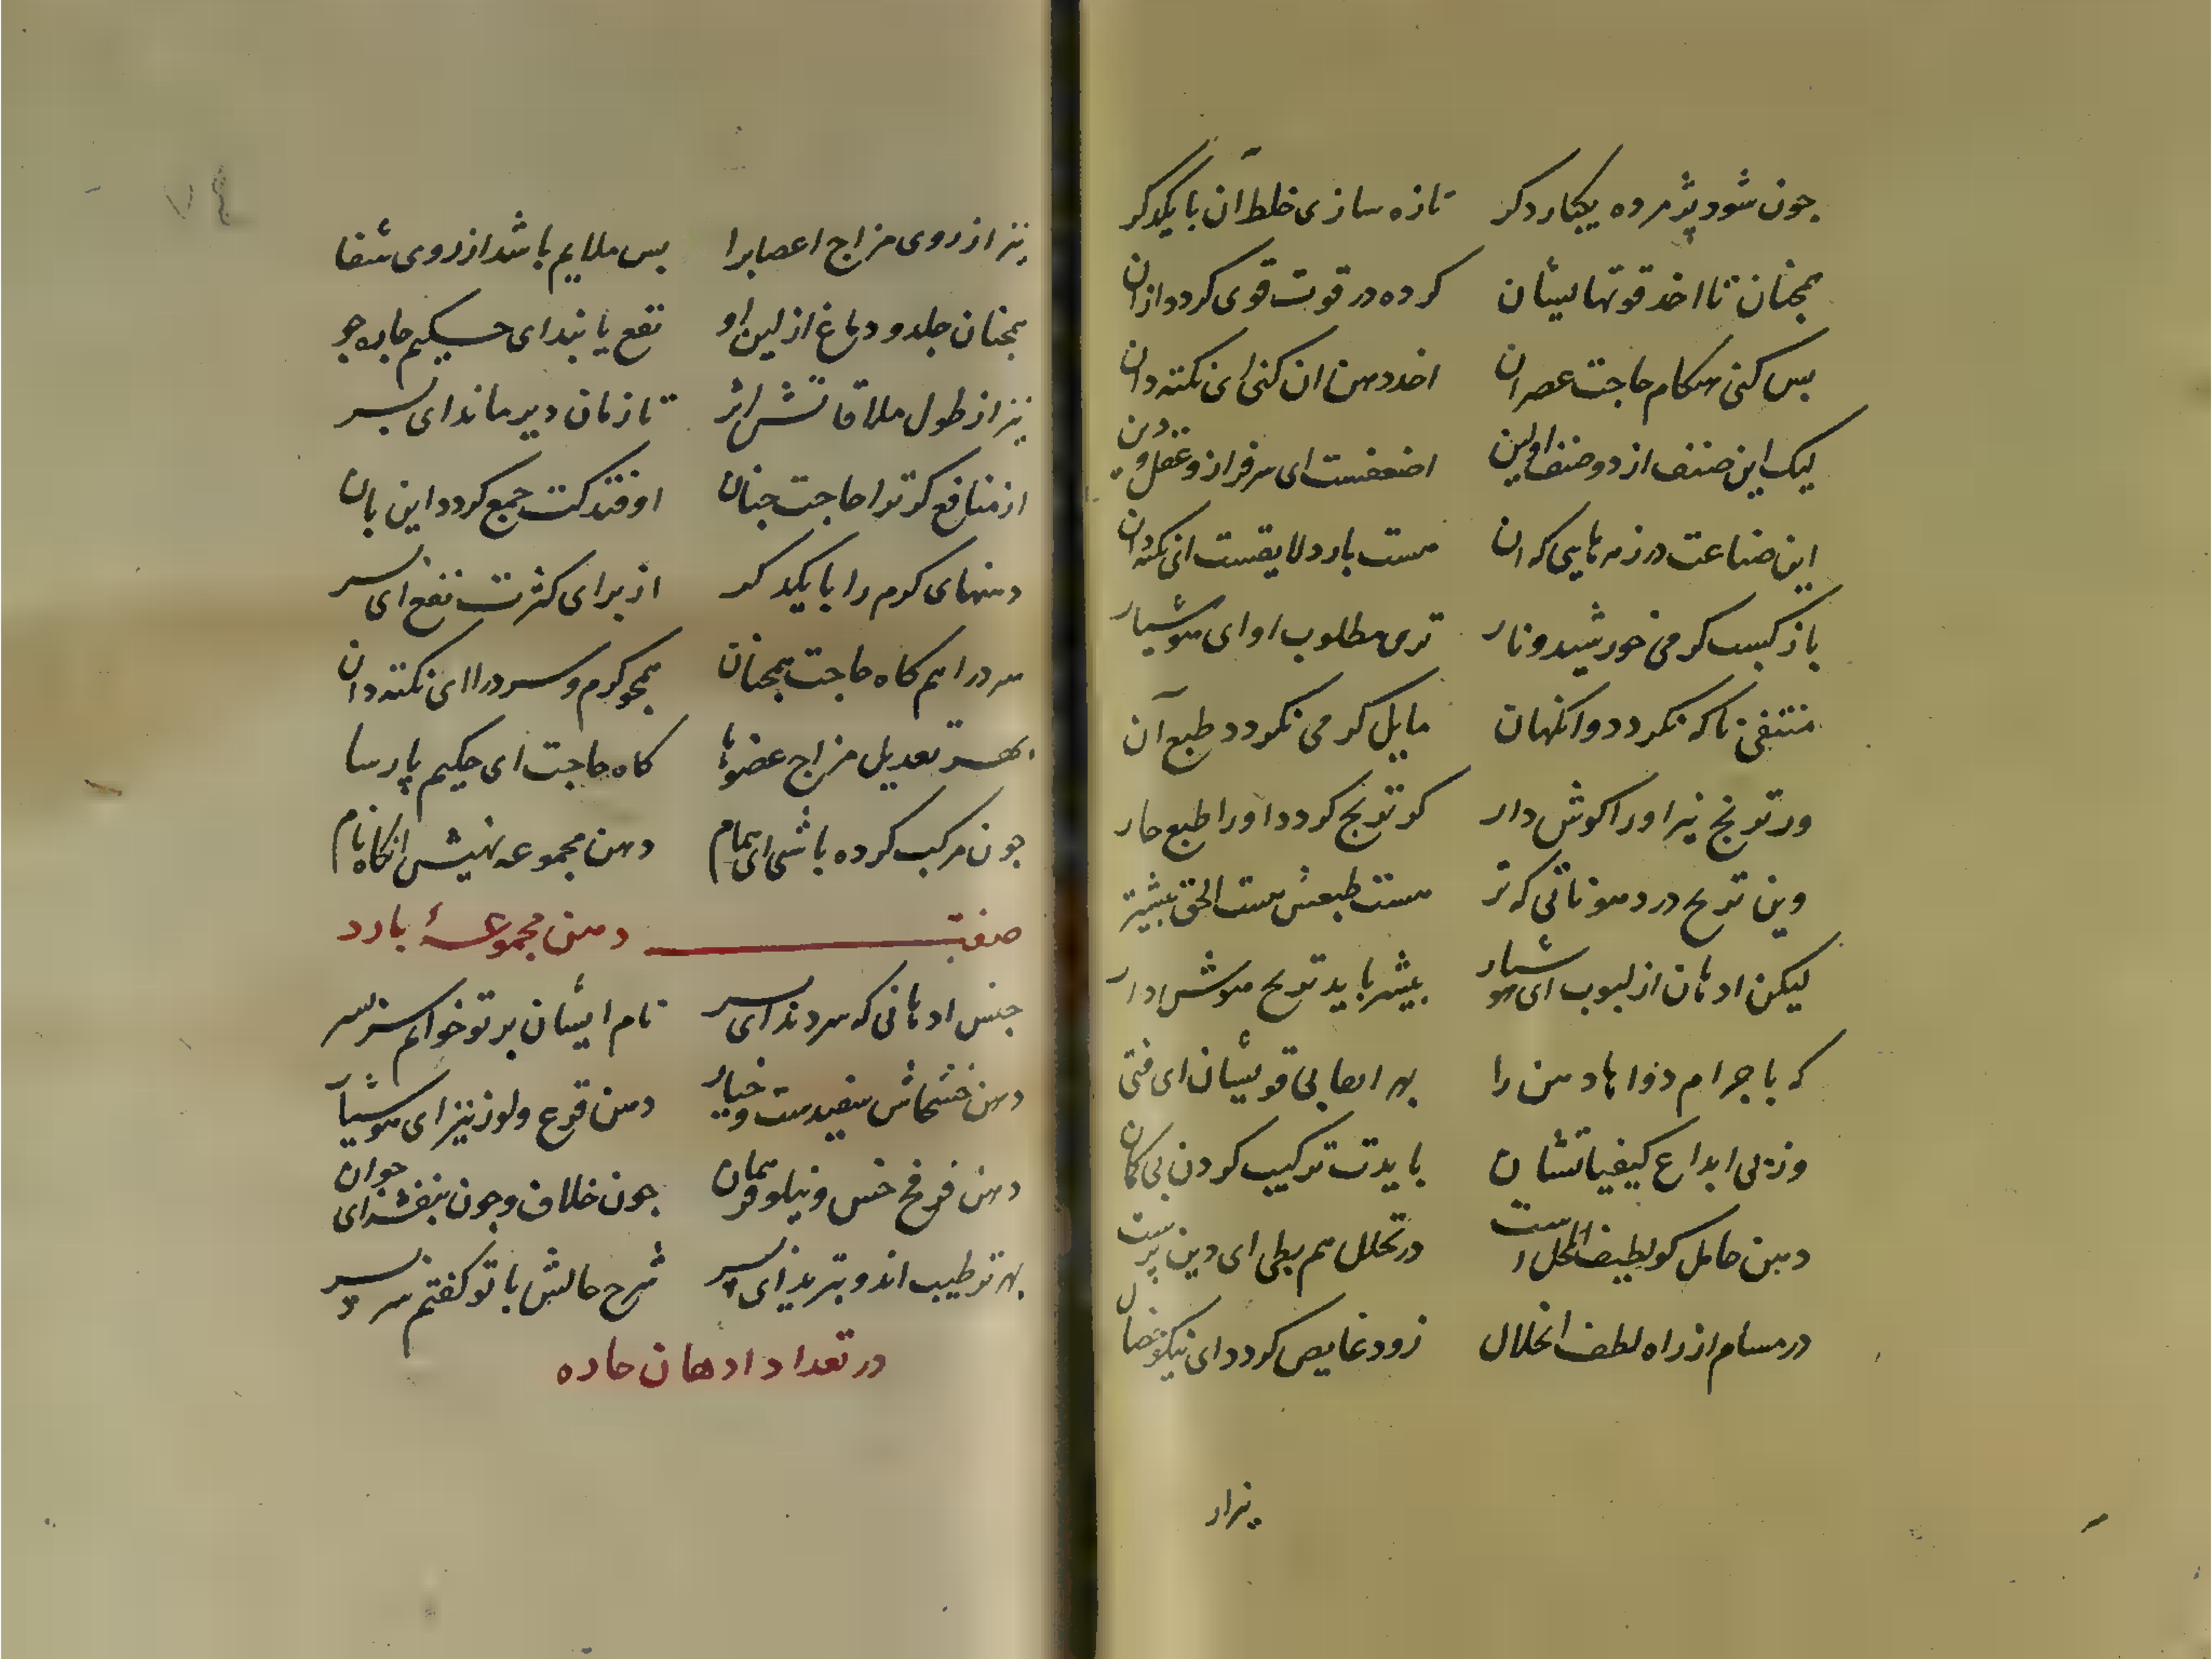 چون شود پژمرده یکبار دکر تازه سازی خلط آن با یکدکر
همچنان تا اخذ قوتهایشان کرده در قوت قوی کردد ازان
پس کنی هنکام حاجت عصر ان اخذ دهن ان کنی ای نکته دان
لیک این صنف از دو صنف اولین اضعفست ای سرفراز و عقل و دین
این صناعت در زهرهایی که ان هست بارد لایقست ای نکته دان
باز کسب کرمی خورشید و نار تری مطلوب او ای هوشیار
منتفی تا که نکردد وانکهان مایل کرمی نکردد طبع آن
ور ترنج نیز اورا کوش دار کو تربح کردد اورا طبع حار
وین تربح در دهوناتی که تر هست طبعش هست الحق بیشتر
لیکن ادهان از لبوب ای هوشیار بیشتر باید تربح هوش دار
که با جرام دواها دهن را بهر ابقای قویشان ای فتی
وز پی ابداع کیفیاتشان بایدت ترکیب کردن بی کمان
دهن حامل کو لطیف المحل است در تحلل هم بطی ای دین پرست
در مسام از راه لطف انحلال زود غایص کردد ای نیکو خصال
نیز از
نیز از روی مزاج اعصابرا بس ملایم باشد از روی شفا
همچنان جلد و دماغ از لین او نفع یابند ای حکیم چاره جو
نیز از طول ملاقاتش اثر تا زمان دیر ماند ای پسر
از منافع کر ترا حاجت چنان اوفتد کت جمع کردد این بان
دهنهای کرم را با یکدکر از برای کثرت نفع ای پسر
سرد را هم کاه حاجت همچنان همچو کرم و سرد را ای نکته دان
بهر تعدیل مزاج عضوها کاه حاجت ای حکیم پارسا
چون مرکب کرده باشی ای همام دهن مجموعه نهیش انکاه نام
صفت دهن مجموعهٔ بارد
جنس ادهانی که سردند ای پسر نام ایشان بر تو خوانم سر بسر
دهن خشخاش سفیدست و خیار دهن قرع و لوز نیز ای هوشیار
دهن فرفخ خس و نیلوفر همان چون خلاف و چون بنفشه ای جوان
بهر ترطیب اند و تبرید ای پسر شرح حالش با تو کفتم
در تعداد ادهان حاده